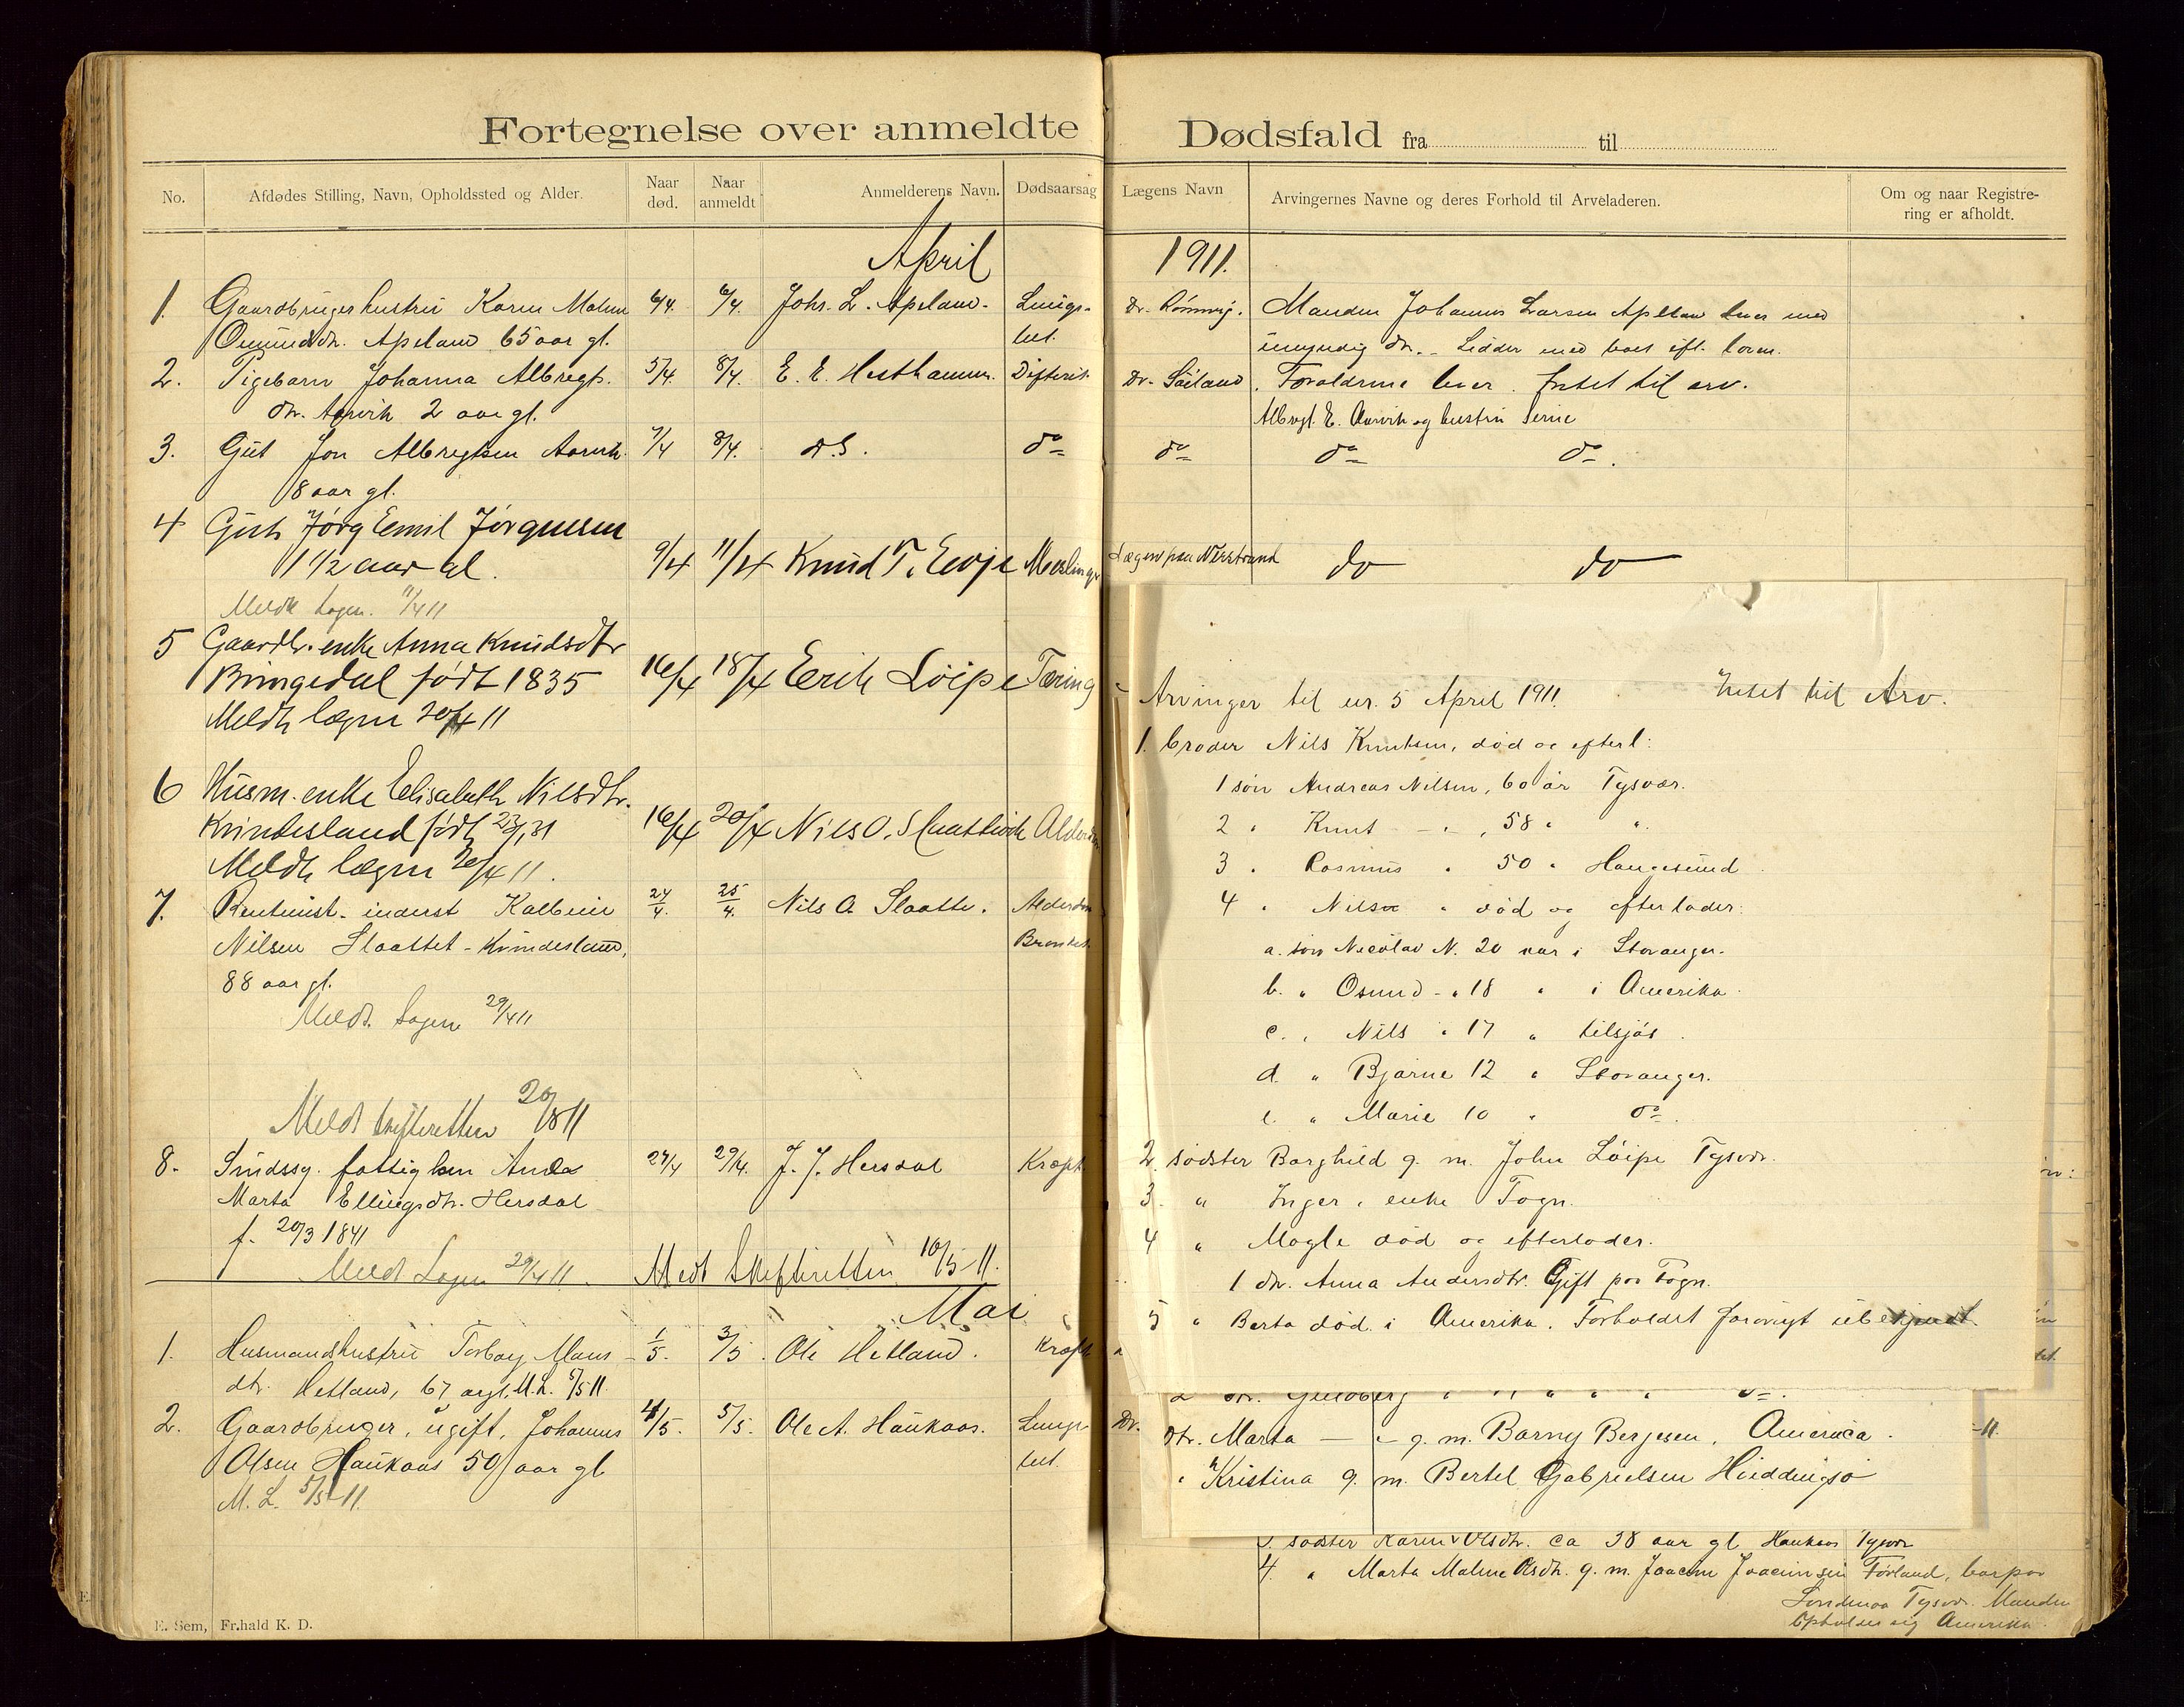 Fortegnelse over anmeldte Dødsfald fra til
No.
Afdødes Stilling, Navn, Opholdssted og Alder.
Naar død.
Naar anmeldt
Anmelderens Navn.
Dødsaarsag
Lægens Navn
Arvingernes Navne og deres Forhold til Arveladeren.
Om og naar Registrering er afholdt.
April 1911.
1. Gaardbrugerhustru Karen Malene 6/4. 6/4. Johs. L. Apeland. Lunge-
dtr. Apeland 65 aar gl. bet.
2. Pigebarn Johanna Albregts. 5/4. 8/4. E. E. Hesthammer. Difterit
dtr. Aarvik 2 aar gl.
3. Gut Jon Albregtsen Aarvik 7/4 8/4. d.S. do
8 aar gl.
4 Gut Jørg Emil Jørgensen
1 1/2 aar gl. 9/4 11/4 Knud T. Evje Meslinger
Meldt Lægen. 11/4 11
5 Gaardbr. enke Anna Knudsdtr
Bringedal født 1835 16/4 18/4 Erik Løipe Tæring
Meldt lægen 20/4 11
6 Husm. enke Elisabeth Nilsdtr.
Kvindesland født 31 16/4 20/4 Nils O. Slaattevik
Meldt lægen 20/4 11.
7. inderst Kolbein 24/4. 25/4. Nils O. Slaatte.
Nilsen Slaattet - Kvindesland,
88 aar gl.
Meldt Lægen 29/4 11
Meldt skifteretten 20/8 11
8. Sindssyg. fattiglem Anna 27/4 29/4. J. J. Hersdal Kræft
Marta Ellingsdtr. Hersdal
f. 20/3 1841
Meldt Lægen 29/4 11. Meldt Skifteretten 10/5-11.
Mai
1. Husmandshustru Torborg Mons 1/5. 3/5. Ole Hetland. Kræft
dtr. Hetland, 67 argl. M.L. 5/5 11.
2. Gaardbruger, ugift, Johannes 4/5. 5/5. Ole A. Haukaas. Lunge
Olsen Haukaas 50 aar gl bet.
M. L. 5/5-11.
E. Sem, Fr.hald K. D.
Dr. Manden Johannes Larsen Apeland lever med
umyndig dtr. - Sidder med boet eft. loven.
Dr. Søiland. Forældrene lever. Intet til arv.
Albregt. E. Aarvik og hustru Serine
do do do.
Lægen paa Nerstrand do do
Arvinger til nr. 5 April 1911. Intet til Arv.
1. broder Nils Knutsen, død og efterl:
1 søn Andreas Nilsen, 60 år Tysvær.
2 " Knut - " , 58 " ".
3 " Rasmus " 50 " Haugesund
4 " Nils " død og efterlader:
a. søn Nicolai N. 20 aar i Stavanger.
b. " Osmund - " 18 " i Amerika.
c. " Nils " 17 " tilsjøs.
d. " Bjarne 12 " Stavanger.
e. " Marie 10 " do.
2 sødster Borghild g. m. John Løipe Tysvær.
3. " Inger, enke Fogn.
4 " Magle død og efterlader.
1 dtr. Anna Andersdtr. Gift paa Fogn.
5 " Berta død i Amerika. Forholdet forøvrigt ubekjendt.
Dr. dtr. Marta - " g. m. Barny Berjesen, America. -11.
" Kristina g. m. Bertel Gabrielsen Hiddingsø
3. sødster Karen Olsdtr. ca 38 aar gl Haukaas Tysvær
4. " Marta Malene Olsdtr. g. m. Joacim Joacimsen Førland, bor paa
Tysvær. Manden
opholder sig Amerika.